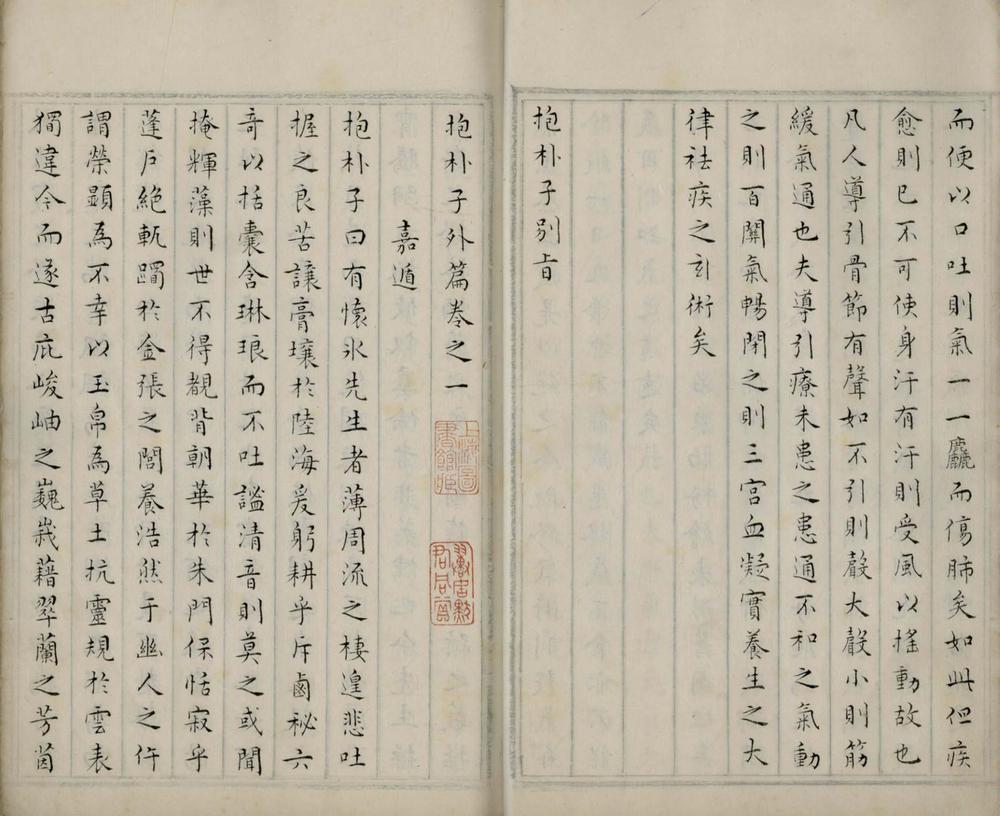 而便以口吐則氣一一麤而傷肺矣如此但疾
愈則已不可使身汗有汗則受風以搖動故也
凡人導引骨節有聲如不引則聲大聲小則筋
緩氣通也夫導引療未患之患通不和之氣動
之則百關氣暢閉之則三宮血凝實養生之大
律祛疾之玄術矣
抱朴子别旨
抱朴子外篇卷之一
嘉遁
抱朴子曰有懷氷先生者薄周流之棲遑悲吐
握之良苦讓膏壤於陸海爰躬耕乎斥鹵祕六
奇以括囊含琳琅而不吐謐清音則莫之或聞
掩輝藻則世不得覩背朝華於朱門保恬寂乎
蓬戶絶軌躅於金張之閭養浩然于幽人之仵
謂榮顯為不幸以玉帛為草土抗靈規於雲表
獨違今而遂古庇峻岫之巍峩藉翠蘭之芳茵
上海圖書館藏